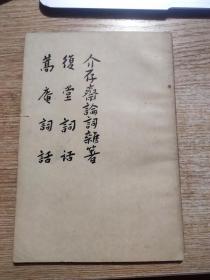 介存齋論詞雜著
復堂詞話
蒿庵詞話